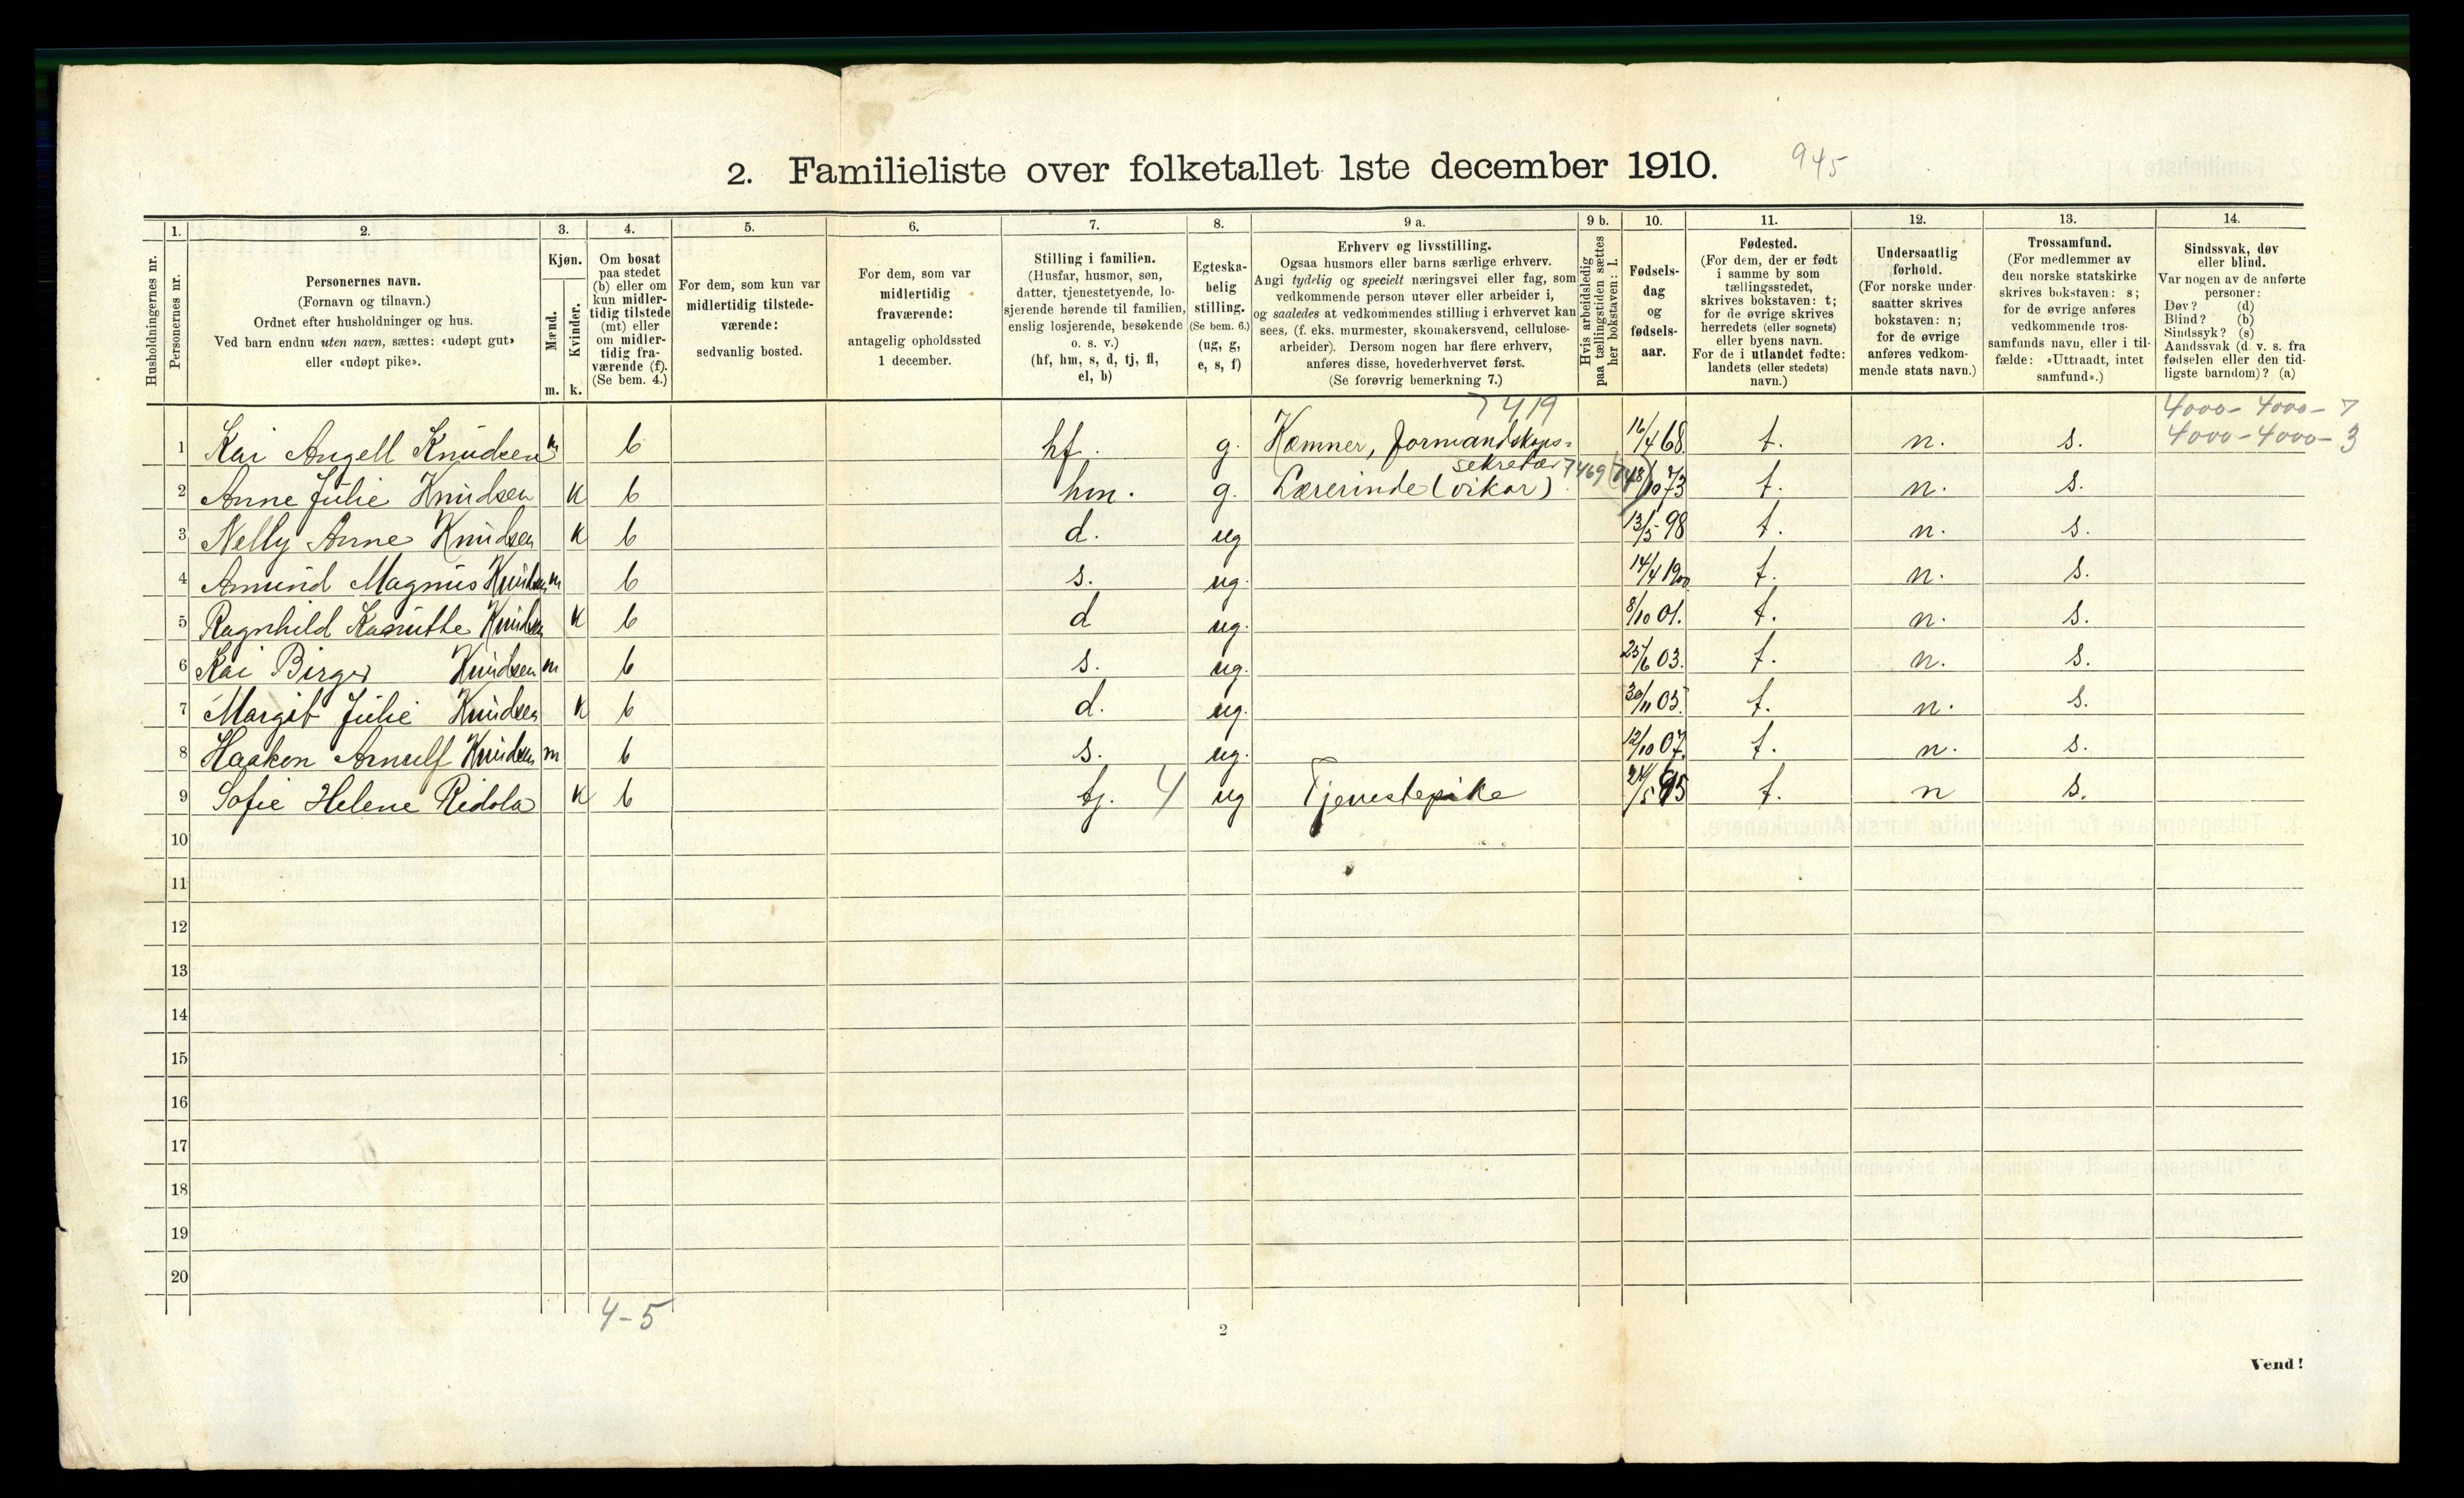 2. Familieliste over folketallet 1ste december 1910. 945
1. 2. 3. 4. 5. 6. 7. 8. 9 a. 9 b. 10. 11. 12. 13. 14.
Husholdningernes nr.
Personernes nr.
Personernes navn.
(Fornavn og tilnavn.)
Ordnet efter husholdninger og hus.
Ved barn endnu uten navn, sættes: «udøpt gut»
eller «udøpt pike».
Kjøn.
Mænd.
Kvinder.
m. k.
Om bosat
paa stedet
(b) eller om
kun midler-
tidig tilstede
(mt) eller
om midler-
tidig fra-
værende (f).
(Se bem. 4.)
For dem, som kun var
midlertidig tilstede-
værende:
sedvanlig bosted.
For dem, som var
midlertidig
fraværende:
antagelig opholdssted
1 december.
Stilling i familien.
(Husfar, husmor, søn,
datter, tjenestetyende, lo-
sjerende hørende til familien,
enslig losjerende, besøkende
o. s. v.)
(hf, hm, s, d, tj, fl,
el, b)
Egteska-
belig
stilling.
(Se bem. 6.)
(ug, g,
e, s, f)
Erhverv og livsstilling.
Ogsaa husmors eller barns særlige erhverv.
Angi tydelig og specielt næringsvei eller fag, som
vedkommende person utøver eller arbeider i,
og saaledes at vedkommendes stilling i erhvervet kan
sees, (f. eks. murmester, skomakersvend, cellulose-
arbeider). Dersom nogen har flere erhverv,
anføres disse, hovederhvervet først.
(Se forøvrig bemerkning 7.)
Hvis arbeidsledig
paa tællingstiden sættes
her bokstaven: l.
Fødsels-
dag
og
fødsels-
aar.
Fødested.
(For dem, der er født
i samme by som
tællingsstedet,
skrives bokstaven: t;
for de øvrige skrives
herredets (eller sognets)
eller byens navn.
For de i utlandet fødte:
landets (eller stedets)
navn.)
Undersaatlig
forhold.
(For norske under-
saatter skrives
bokstaven: n;
for de øvrige
anføres vedkom-
mende stats navn.)
Trossamfund.
(For medlemmer av
den norske statskirke
skrives bokstaven: s;
for de øvrige anføres
vedkommende tros-
samfunds navn, eller i til-
fælde: «Uttraadt, intet
samfund».)
Sindssvak, døv
eller blind.
Var nogen av de anførte
personer:
Døv? (d)
Blind? (b)
Sindssyk? (s)
Aandssvak (d. v. s. fra
fødselen eller den tid-
ligste barndom)? (a)
7419 4000-4000-7
1 Kai Angell Knudsen m b hf. g. Kæmner, formandskaps= 16/4 68. t. n. s. 4000-4000-3
sekretær 7469
2 Anne Julie Knudsen k b hm. g. Lærerinde (vikar) 18/10 73 t. n. s.
3 Nelly Anne Knudsen k b d. ug 13/5 98 t. n. s.
4 Amund Magnus Knudsen m b s. ug. 14/4 1900 t. n. s.
5 Ragnhild Knudsen k b d ug. 8/10 01. t. n. s.
6 Kai Birger Knudsen m b s. ug. 25/6 03. t. n. s.
7 Margit Julie Knudsen k b d. ug. 30/11 05. t. n. s.
8 Haakon Arnulf Knudsen m b s. ug. 12/10 07. t. n. s.
9 Sofie Helene Ridola k b tj. 4 ug Tjenestepike t. n s.
10
11
12
13
14
15
16
17
18
19
20
4-5
2
Vend!